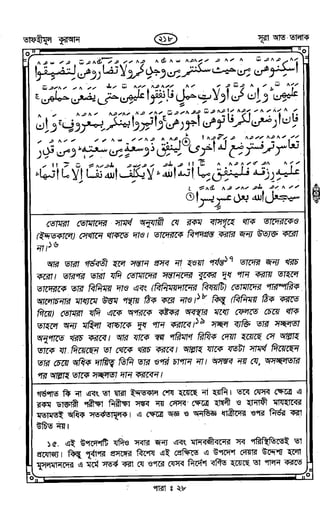 তাফহীমুল কুরআন ২১৮ সূরা আত তালাক
أَسْكِنُوهُنَّ مِنْ حَيْثُ سَكَنْتُمْ مِنْ وُجْدِكُمْ وَلَا تُضَارُّوهُنَّ لِتُضَيِّقُوا
عَلَيْهِنَّ وَإِنْ كُنَّ أُولَاتِ حَمْلٍ فَأَنْفِقُوا عَلَيْهِنَّ حَتَّى يَضَعْنَ حَمْلَهُنَّ
فَإِنْ أَرْضَعْنَ لَكُمْ فَآتُوهُنَّ أُجُورَهُنَّ وَأْتَمِرُوا بَيْنَكُمْ بِمَعْرُوفٍ وَإِنْ
تَعَاسَرْتُمْ فَسَتُرْضِعُ لَهُ أُخْرَى لِيُنْفِقْ ذُو سَعَةٍ مِنْ سَعَتِهِ وَمَنْ قُدِرَ
عَلَيْهِ رِزْقُهُ فَلْيُنْفِقْ مِمَّا آتَاهُ اللَّهُ لَا يُكَلِّفُ اللَّهُ نَفْسًا إِلَّا مَا آتَاهَا
سَيَجْعَلُ اللَّهُ بَعْدَ عُسْرٍ يُسْرًا
তোমরা তোমাদের সামর্থ অনুযায়ী যে রকম বাসগৃহে থাক তাদেরকেও
(ইদ্দতকালে) সেখানে থাকতে দাও। তাদেরকে বিপদগ্রস্ত করার জন্য উত্যক্ত করো
না।১৬
আর তারা গর্ভবতী হলে সন্তান প্রসব না হওয়া পর্যন্ত১৭ তাদের জন্য খরচ
করো। তারপর তারা যদি তোমাদের সন্তানদের বুকের দুধ পান করায় তাহলে
তাদেরকে তার বিনিময় দাও এবং (বিনিময়দানের বিষয়টি) তোমাদের পারস্পরিক
আলোচনার মাধ্যমে উত্তম পন্থায় ঠিক করে নাও।১৮ কিন্তু (বিনিময় ঠিক করতে
গিয়ে) তোমরা যদি একে অপরকে কষ্টকর অবস্থার মধ্যে ফেলতে চেয়ে থাক
তাহলে অন্য মহিলা বাচ্চাকে দুধ পান করাবে।১৯ সচ্ছল ব্যক্তি তার সচ্ছলতা
অনুপাতে খরচ করবে। আর যাকে স্বল্প পরিমাণ রিযিক দেয়া হয়েছে সে আল্লাহ
তাকে যা দিয়েছেন তা থেকে খরচ করবে। আল্লাহ যাকে যতটা সামর্থ দিয়েছেন
তার চেয়ে অধিক দায়িত্ব তিনি তার ওপর চাপান না। অসম্ভব নয় যে, অসচ্ছলতার
পর আল্লাহ তাকে সচ্ছলতা দান করবেন।
গর্ভপাত কি না এবং তা দ্বারা ইদ্দতকাল শেষ হয়েছে না হয়নি। তবে যেসব ক্ষেত্রে এ
রকম ডাক্তারী পরীক্ষা নিরীক্ষা সম্ভব নয় সেসব ক্ষেত্রে হাম্বলী ও হানাফী মাযহাবের
মতামতই অধিক সতর্কতামূলক। এ ক্ষেত্রে অজ্ঞ ও অনভিজ্ঞ ধাত্রীদের ওপর নির্ভর করা
উচিত নয়।
১৫. এই উপদেশটি যদিও সবার জন্য এবং মানবজীবনের সব পরিস্থিতিতেই তা
প্রযোজ্য। কিন্তু পূর্বাপর প্রসংগের বিশেষ এই প্রেক্ষিতে এ উপদেশ দেয়ার উদ্দেশ্য হলো
মুসলমানদের এ মর্মে সতর্ক করা যে ওপরে যেসব নির্দেশ বর্ণিত হয়েছে তা পালন করতে
পারা ঃ ২৮